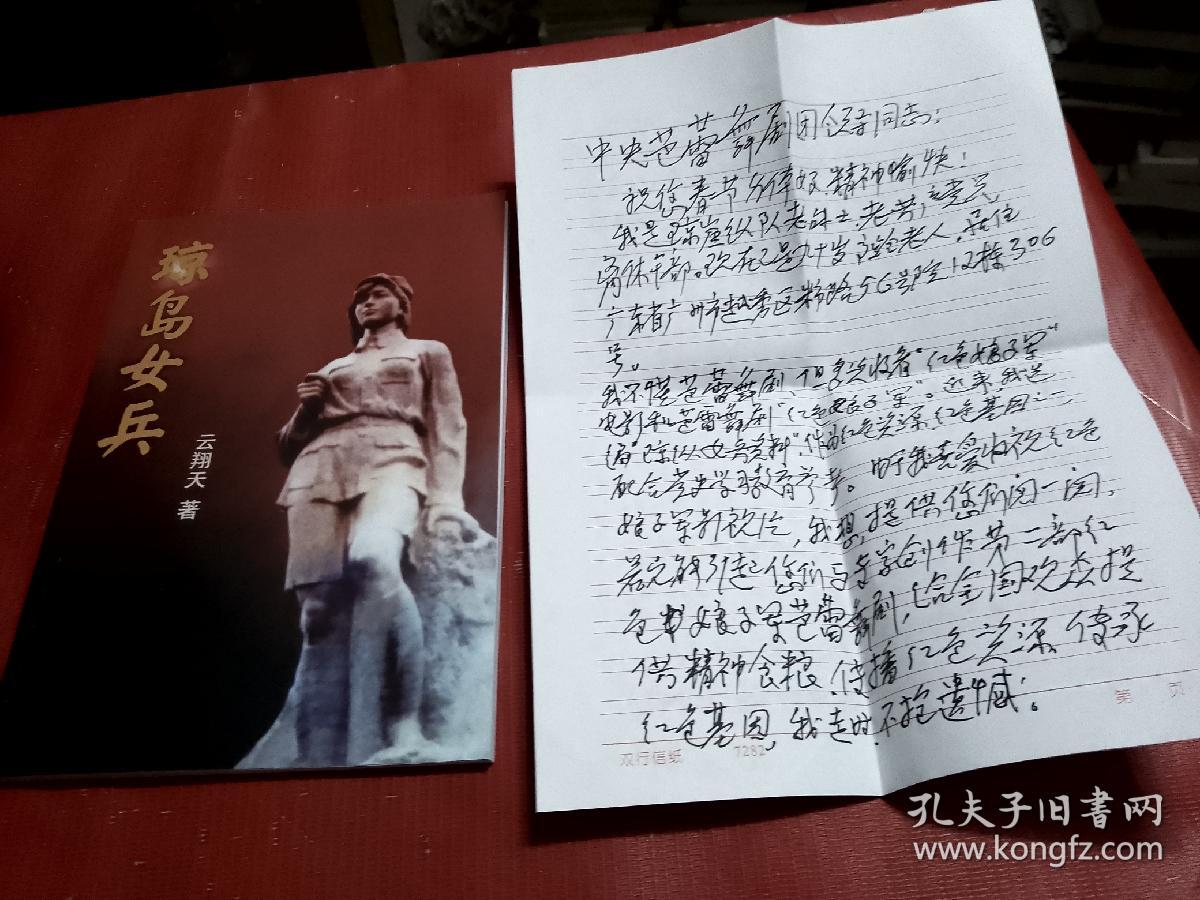 琼岛女兵
云翔天 著
中央芭蕾舞剧团领导同志：
祝您春节身体好精神愉快！
我是琼崖纵队老战士、老共产党员、
离休干部。现在已是九十岁老人，居住
广东省广州市越秀区 56号院12栋306
号。
我不懂芭蕾舞剧，但多次收看"红色娘子军"
电影和芭蕾舞剧"红色娘子军"。近来我选
编"琼纵女兵资料"作为红色资源红色基因
配合党史学习教育 。由于我喜爱收视红色
娘子军影视片，我想提供您们阅一阅，
若 能引起您们 专家创作第二部红
色娘子军芭蕾舞剧，给全国观众提
供精神食粮，传播红色资源传承
红色基因，我走时不抱遗憾。
双行信纸 7282
第 页
孔夫子旧书网
www.kongfz.com